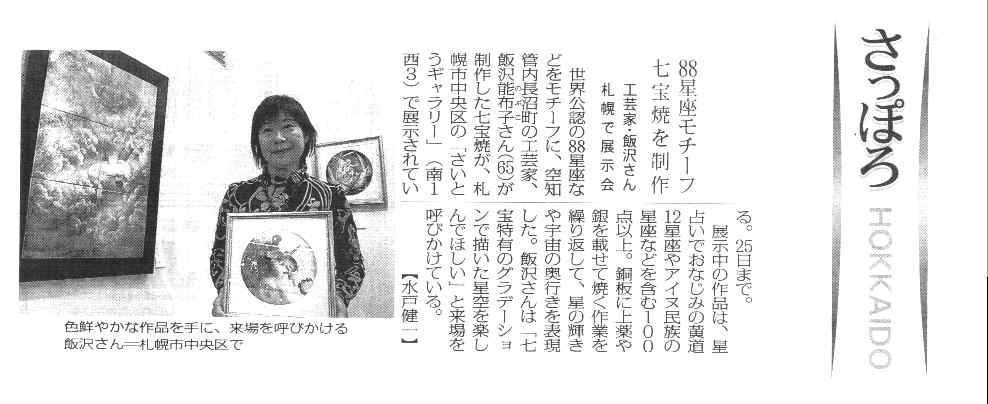 さっぽろ
HOKKAIDO
88星座モチーフ
七宝焼を制作
工芸家・飯沢さん
札幌で展示会
世界公認の88星座な
どをモチーフに、空知
管内長沼町の工芸家、
飯沢能布子さん(65)が
制作した七宝焼が、札
幌市中央区の「ざいと
うギャラリー」(南1
西3)で展示されてい
る。25日まで。
展示中の作品は、星
占いでおなじみの黄道
12星座やアイヌ民族の
星座などを含む100
点以上。銅板に上薬や
銀を載せて焼く作業を
繰り返して、星の輝き
や宇宙の奥行きを表現
した。飯沢さんは「七
宝特有のグラデーショ
ンで描いた星空を楽し
んでほしい」と来場を
呼びかけている。
【水戸健一】
色鮮やかな作品を手に、来場を呼びかける
飯沢さん=札幌市中央区で